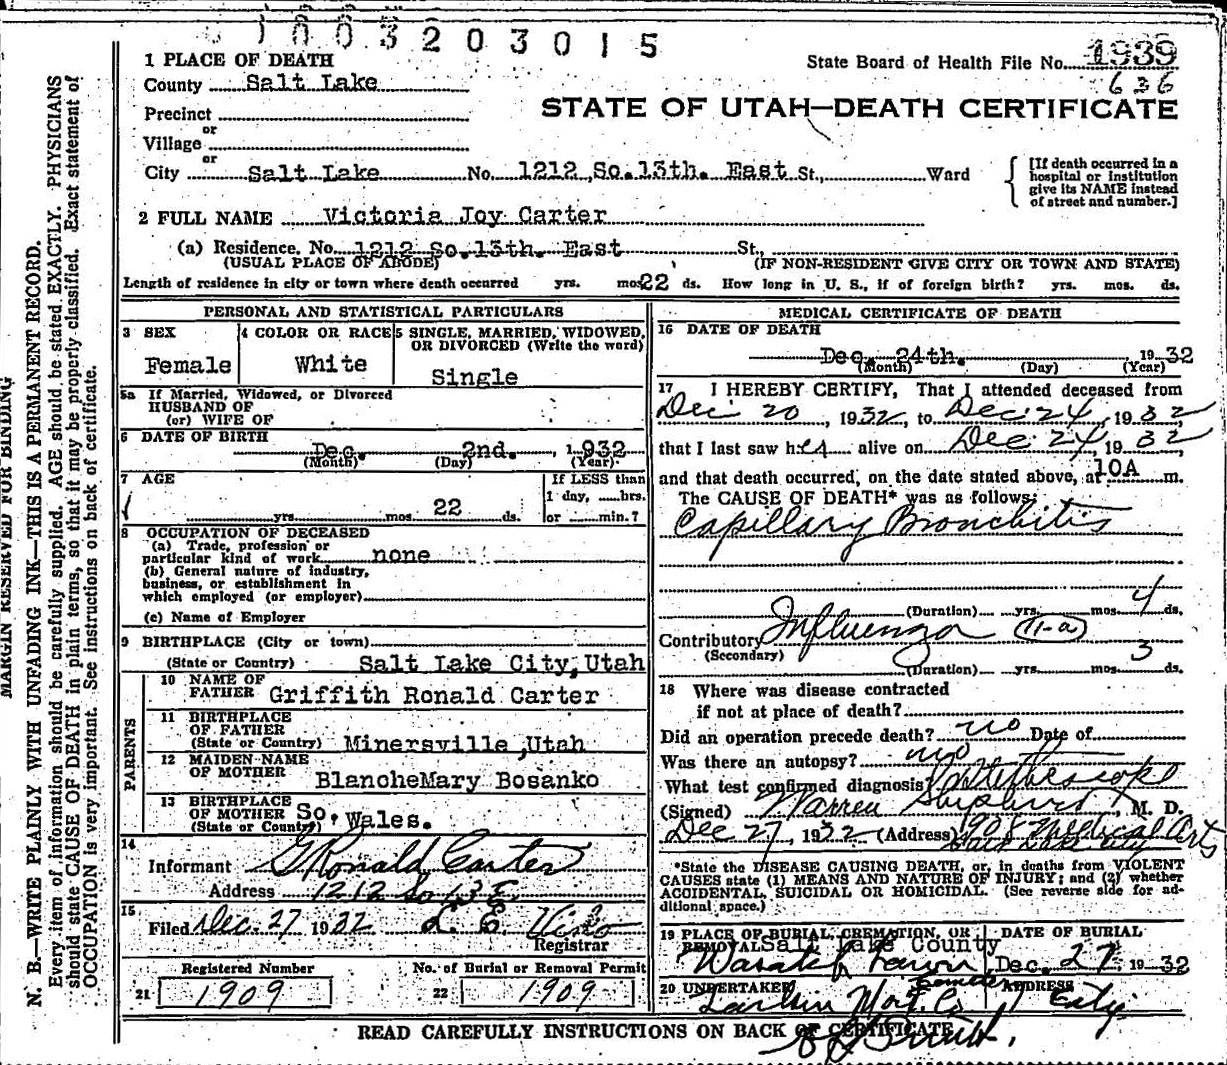 1003203015
1 PLACE OF DEATH
State Board of Health File No. 1939
636
County Salt Lake
STATE OF UTAH—DEATH CERTIFICATE
Precinct
or
Village
or
City Salt Lake No. 1212 So. 13th. East St., Ward
{ [If death occurred in a
hospital or institution
give its NAME instead
of street and number.]
2 FULL NAME Victoria Joy Carter
(a) Residence, No. 1212 So. 13th. East St.,
(USUAL PLACE OF ABODE) (IF NON-RESIDENT GIVE CITY OR TOWN AND STATE)
Length of residence in city or town where death occurred yrs. mos. 22 ds. How long in U. S., if of foreign birth? yrs. mos. ds.
PERSONAL AND STATISTICAL PARTICULARS
3 SEX
Female
4 COLOR OR RACE
White
5 SINGLE, MARRIED, WIDOWED,
OR DIVORCED (Write the word)
Single
5a If Married, Widowed, or Divorced
HUSBAND OF
(or) WIFE OF
6 DATE OF BIRTH
Dec. 2nd. , 1932
(Month) (Day) (Year)
7 AGE
yrs. mos. 22 ds.
If LESS than
1 day, ......hrs.
or ........min.?
8 OCCUPATION OF DECEASED
(a) Trade, profession or
particular kind of work none
(b) General nature of industry,
business, or establishment in
which employed (or employer)
(c) Name of Employer
9 BIRTHPLACE (City or town)
(State or Country) Salt Lake City, Utah
PARENTS
10 NAME OF
FATHER Griffith Ronald Carter
11 BIRTHPLACE
OF FATHER
(State or Country) Minersville, Utah
12 MAIDEN NAME
OF MOTHER BlancheMary Bosanko
13 BIRTHPLACE
OF MOTHER
(State or Country) So. Wales.
14
Informant G Ronald Carter
Address 1212 So 13 E
15
Filed Dec. 27 1932 L. E.
Registrar
Registered Number
21 1909
No. of Burial or Removal Permit
22 1909
MEDICAL CERTIFICATE OF DEATH
16 DATE OF DEATH
Dec. 24th. , 1932
(Month) (Day) (Year)
17 I HEREBY CERTIFY, That I attended deceased from
Dec 20, 1932, to Dec 24, 1932
that I last saw her alive on Dec 24, 1932,
and that death occurred, on the date stated above, at 10A m.
The CAUSE OF DEATH* was as follows:
Capillary Bronchitis
(Duration) yrs. mos. 4 ds.
Contributory Influenza 11-a
(Secondary)
(Duration) yrs. mos. 3 ds.
18 Where was disease contracted
if not at place of death?
Did an operation precede death? no Date of
Was there an autopsy? no
What test confirmed diagnosis? Stethescope
(Signed) Warren Shepherd, M. D.
Dec 27, 1932 (Address) 908 Medical Arts
Salt Lake City
*State the DISEASE CAUSING DEATH, or, in deaths from VIOLENT
CAUSES state (1) MEANS AND NATURE OF INJURY; and (2) whether
ACCIDENTAL, SUICIDAL OR HOMICIDAL. (See reverse side for ad-
ditional space.)
19 PLACE OF BURIAL, CREMATION, OR
REMOVAL Salt Lake County
Wasatch Lawn
Cemetery
DATE OF BURIAL
Dec. 27, 1932
20 UNDERTAKER
Larkin Mort. Co
ADDRESS
City
READ CAREFULLY INSTRUCTIONS ON BACK OF CERTIFICATE
MARGIN RESERVED FOR BINDING
N. B.—WRITE PLAINLY WITH UNFADING INK—THIS IS A PERMANENT RECORD.
Every item of information should be carefully supplied. AGE should be stated EXACTLY. PHYSICIANS
should state CAUSE OF DEATH in plain terms, so that it may be properly classified. Exact statement of
OCCUPATION is very important. See instructions on back of certificate.